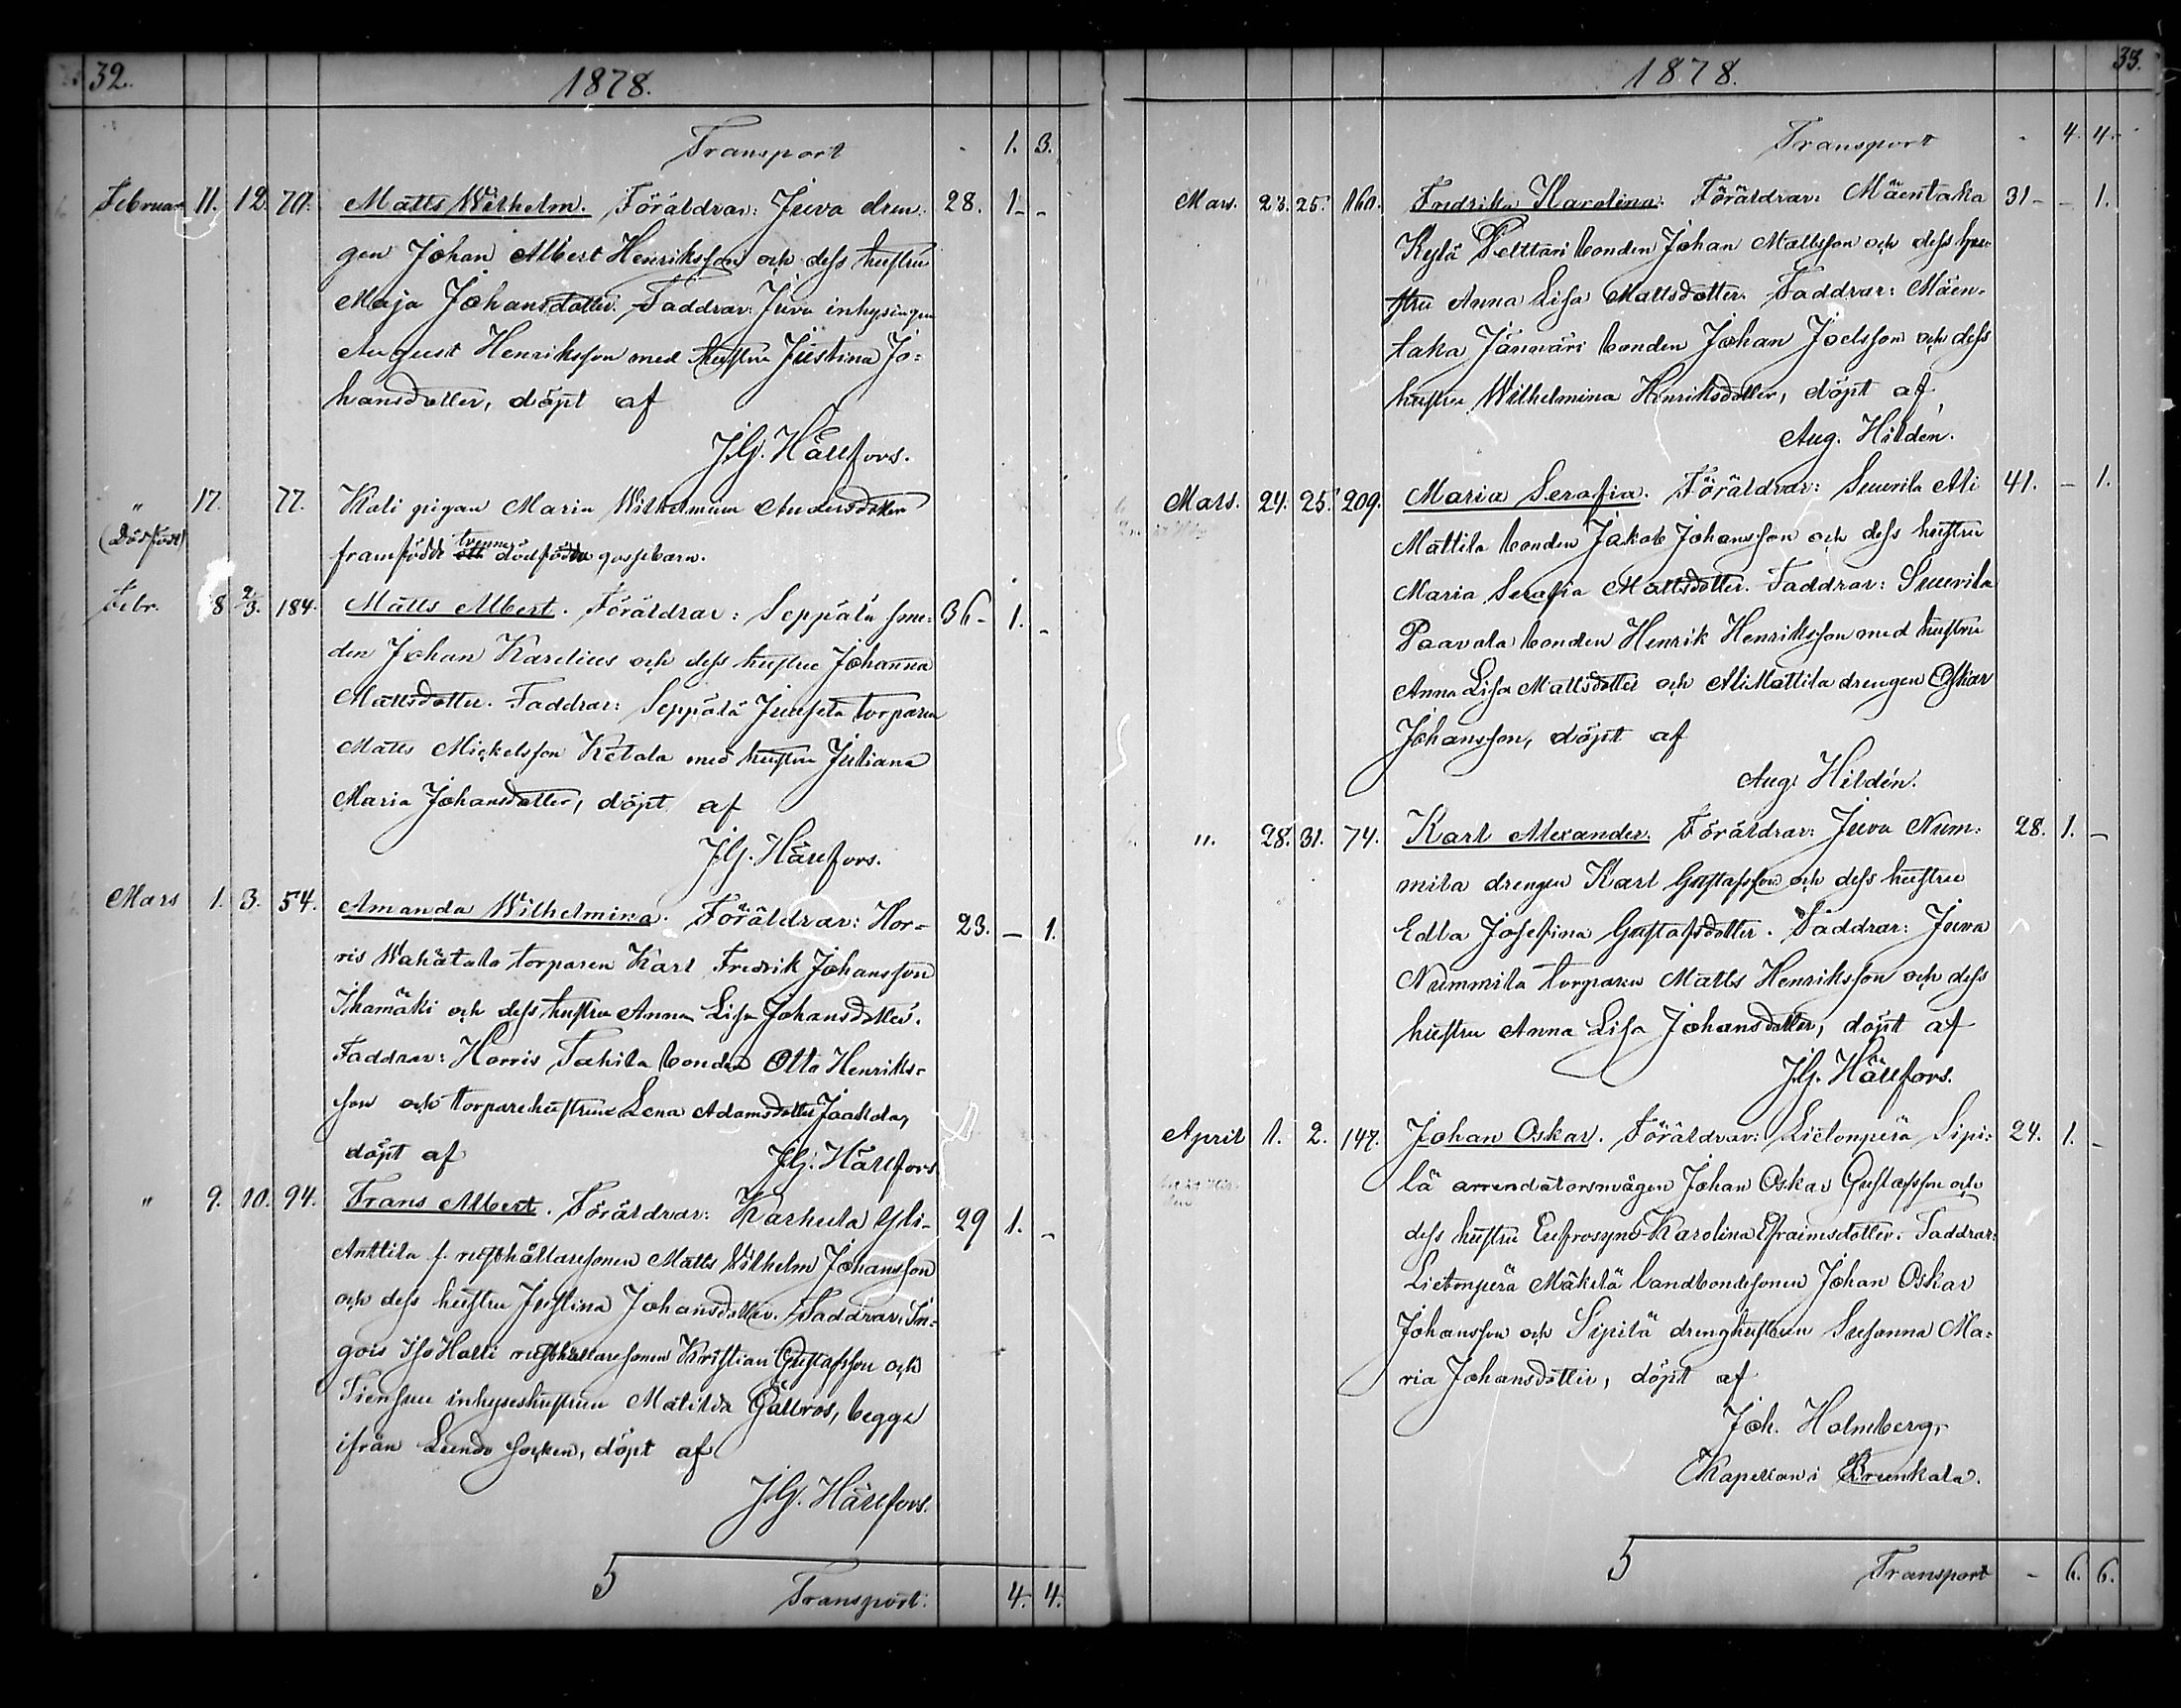 32.
1878.
Transport - 1. 3.
Februar 11. 12. 70. Matts Wilhelm. Föräldrar: Juva dren- 28. 1 - -
gen Johan Albert Henriksson och dess hustru
Maja Johansdotter. Faddrar: Juva inhysingen
August Henriksson med hustru Justina Jo=
hansdotter, döpt af
J.G. Hällfors.
" 17. 77. Kali pigan Maria Wilhelmina Andersdotter
(Dödfödt)
tvenne
framfödde ett dödfödda gossebarn.
Febr. 8 2/3. 184. Matts Albert. Föräldrar: Seppälä sme= 36 - 1. -
den Johan Karelius och dess hustru Johanna
Mattsdotter. Faddrar: Seppälä torparen
Matts Mickelsson Ketala med hustru Juliana
Maria Johansdotter, döpt af
J.G. Hällfors.
Mars 1. 3. 54. Amanda Wilhelmina. Föräldrar: Hor= 23. - 1.
ris Wahätalo torparen Karl Fredrik Johansson
Ihamäki och dess hustru Anna Lisa Johansdotter.
Faddrar: Horris Tahila bonden Otto Henriks=
son och torparehustrun Lena Adamsdotter Jaakola,
döpt af J.G. Hällfors
" 9. 10. 94. Frans Albert. Föräldrar: Karhula Yli- 29 1. -
Anttila f. rusthållaresonen Matts Wilhelm Johansson
och dess hustru Justina Johansdotter. Faddrar: In=
gois Iso Halli rusthållaresonen Kristian Gustafsson och
inhyseshustrun Matilda Gällros, begge
ifrån Lundo socken, döpt af
J.G. Hällfors.
5
Transport: 4. 4.
33.
1878.
Transport - 4. 4.
Mars. 23. 25. 160. Fredrika Karolina. Föräldrar: Mäentaka 31 - - 1.
Kylä Pelttari bonden Johan Mattsson och dess hu-
stru Anna Lisa Mattsdotter. Faddrar: Mäen-
taka Jänmäri bonden Johan Joelsson och dess
hustru Wilhelmina Henriksdotter, döpt af
Aug. Hildén.
Mars. 24. 25. 209. Maria Serafia. Föräldrar: Suurila Ali 41. - 1.
Mattila bonden Jakob Johansson och dess hustru
Maria Serafia Mattsdotter. Faddrar: Suurila
Paavala bonden Henrik Henriksson med hustru
Anna Lisa Mattsdotter och Ali Mattila drengen Oskar
Johansson, döpt af
Aug. Hildén.
". 28. 31. 74. Karl Alexander. Föräldrar: Juva Num= 28. 1. -
mila drengen Karl Gustafsson och dess hustru
Edla Josefina Gustafsdotter. Faddrar: Juva
Nummila torparen Matts Henriksson och dess
hustru Anna Lisa Johansdotter, döpt af
J.G. Hällfors.
April 1. 2. 147. Johan Oskar. Föräldrar: Lietonperä Sipi= 24. 1. -
lä arrendatorsmågen Johan Oskar Gustafsson och
dess hustru Eufrosyne Karolina Efraimsdotter. Faddrar:
Lietonperä Mäkelä landbondesonen Johan Oskar
Johansson och Sipilä drenghustrun Susanna Ma=
ria Johansdotter, döpt af
Joh. Holmberg,
Kapellan i Brunkala.
5
Transport - 6. 6.